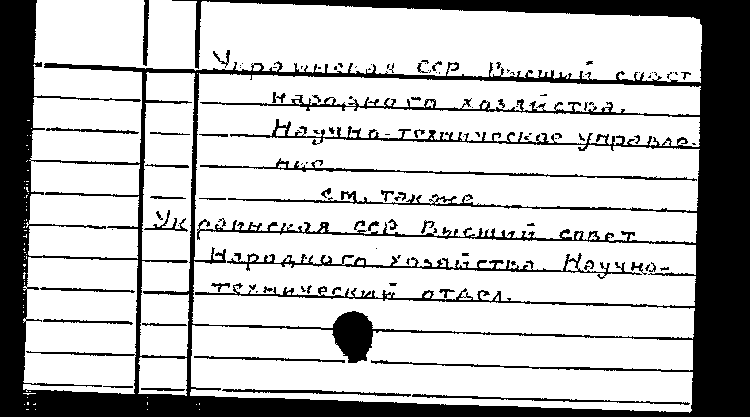 Украинская ССР. Высший совет
народного хозяйства.
Научно-техническое управле-
ние
см. также
Украинская ССР. Высший совет
Народного хозяйства. Научно-
технический отдел.